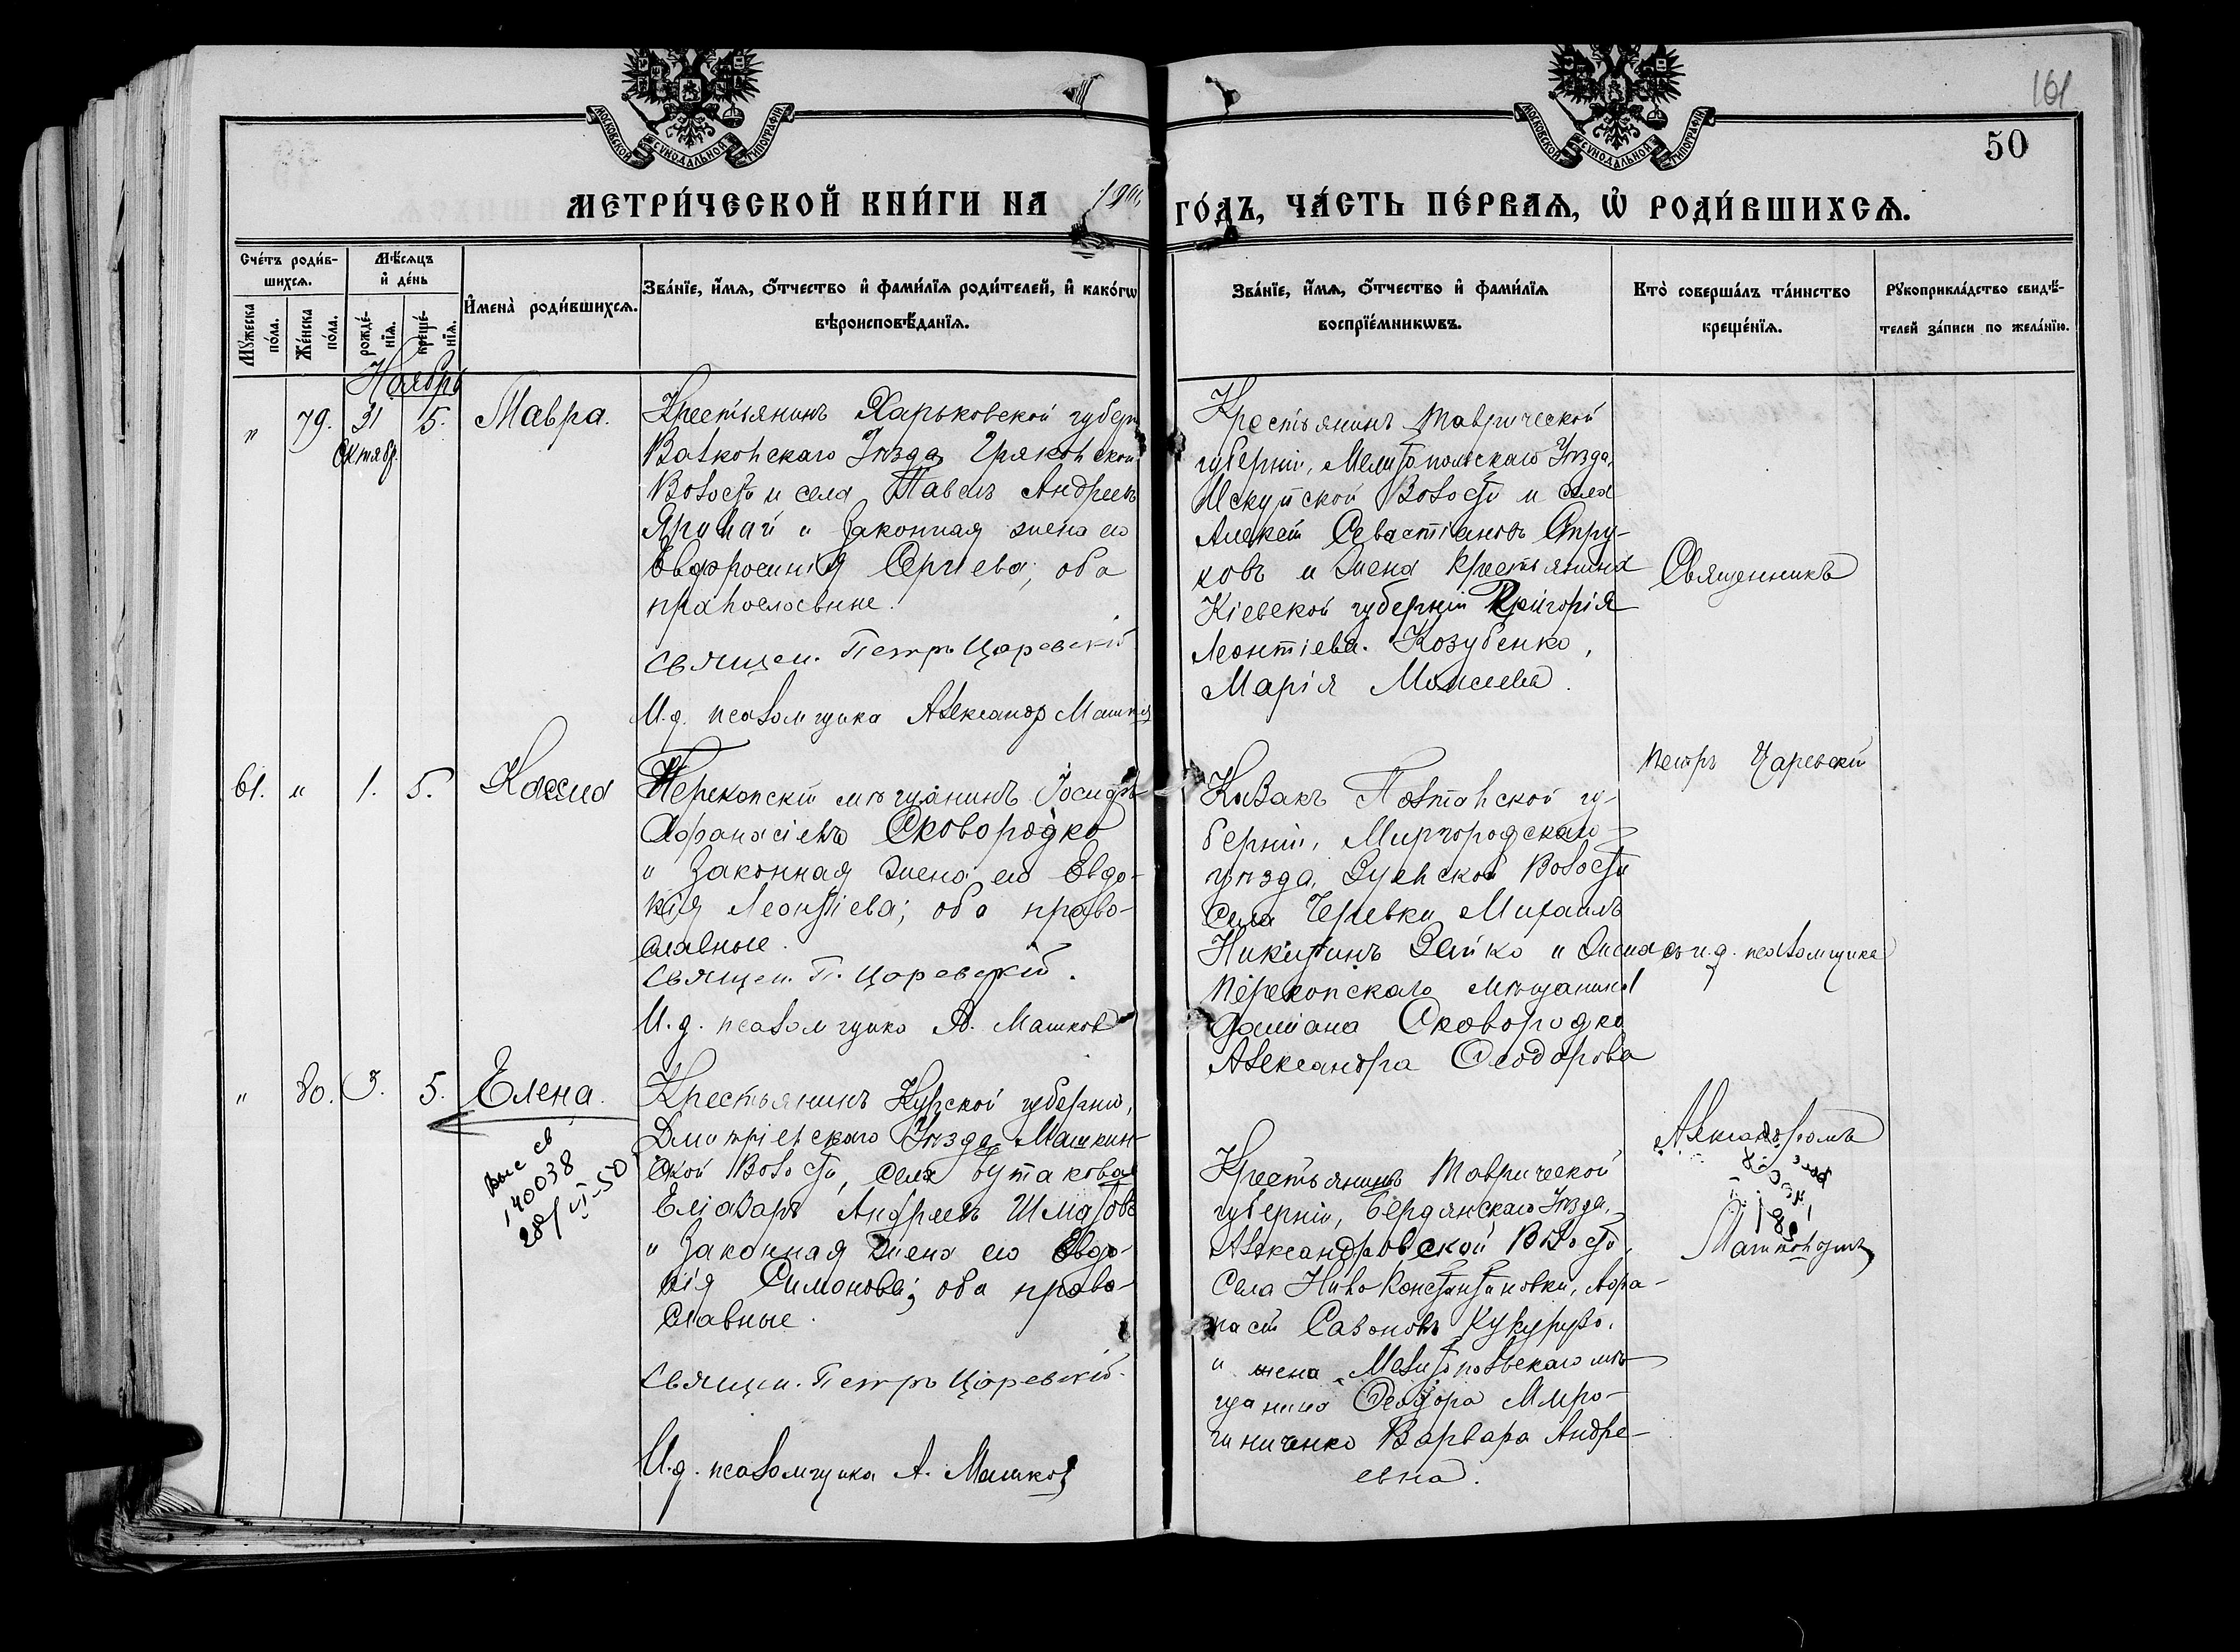 161
50
МОСКОВСКОЙ СѴНОДАЛЬНОЙ ТИПОГРАФІИ
МОСКОВСКОЙ СѴНОДАЛЬНОЙ ТИПОГРАФІИ
МЕТРИ́ЧЕСКОЙ КНИ́ГИ НА
ГО́ДЪ, ЧА́СТЬ ПЕ́РВАѦ, Ѡ҆ РОДИ́ВШИХСѦ.
Сче́тъ роди́в-
шихсѧ.
Мѣ́сѧцъ
и҆ де́нь
Мꙋ́жеска по́ла.
Же́нска по́ла.
рожде́-нїѧ.
креще́-нїѧ.
И҆мена̀ роди́вшихсѧ.
Зва́нїе, и҆́мѧ, ѻ҆́тчество и҆ фами́лїѧ роди́телей, и҆ како́гѡ
вѣроисповѣ́данїѧ.
Зва́нїе, и҆́мѧ, ѻ҆́тчество и҆ фами́лїѧ
воспрїе́мникѡвъ.
Кто̀ соверша́лъ та́инство
креще́нїѧ.
Рꙋкоприкла́дство свидѣ́-
телей за́писи по жела́нїю.
Ноябрь
" 79. 31 5. Мавра.
Октябр.
Крестьянинъ Харьковской губерн
Валковскаго Уѣзда
Волости и села Павелъ Андреевъ
и законная жена его
Евфросинія Сергіева; оба
православные.
Священ. Петръ Царевскій
И. д. псаломщика Александр Машков
Крестьянинъ Таврической
губерніи, Мелитопольскаго Уѣзда,
Волости и села
Алексѣй Севастіановъ Стру-
ковъ и жена крестьянина
Кіевской губерніи Григорія
Леонтіева Козубенко,
Марія Моисеева.
Священникъ
Петръ Царевскій
61. " 1. 5. Кассиа
Перекопскій мѣщанинъ Іосифъ
Афанасіевъ Сковородко
и законная жена его Евдо-
кія Леонтіева; оба право-
славные.
Священ. П. Царевскій.
И. д. псаломщика А. Машков
Казакъ Полтавской гу-
берніи, Миргородскаго
уѣзда, Зуевской Волости
села Черевки Михаилъ
Никитинъ Зайко и жена
Перекопскаго мѣщанина
Даміана Сковородко
Александра Феодорова
съ и. д. псаломщика
Александромъ
Машковымъ
" 80. 3. 5. Елена.
140038
28/VI-50
Крестьянинъ Курской губерніи,
Дмитріевскаго Уѣзда Машкин-
ской Волости, села Бутакова
Еліазаръ Андреевъ Шматовъ
и законная жена его Евдо-
кія Симонова; оба право-
славные.
Священ. Петръ Царевскій.
И. д. псаломщика А. Машков
Крестьянинъ Таврической
губерніи, Бердянскаго Уѣзда,
Александровской Волости,
села Ново Константиновки, Афа-
насій Савоновъ Кукурузо,
и жена Мелитопольскаго мѣ-
щанина Феодора Миро-
шниченко Варвара Андре-
евна.